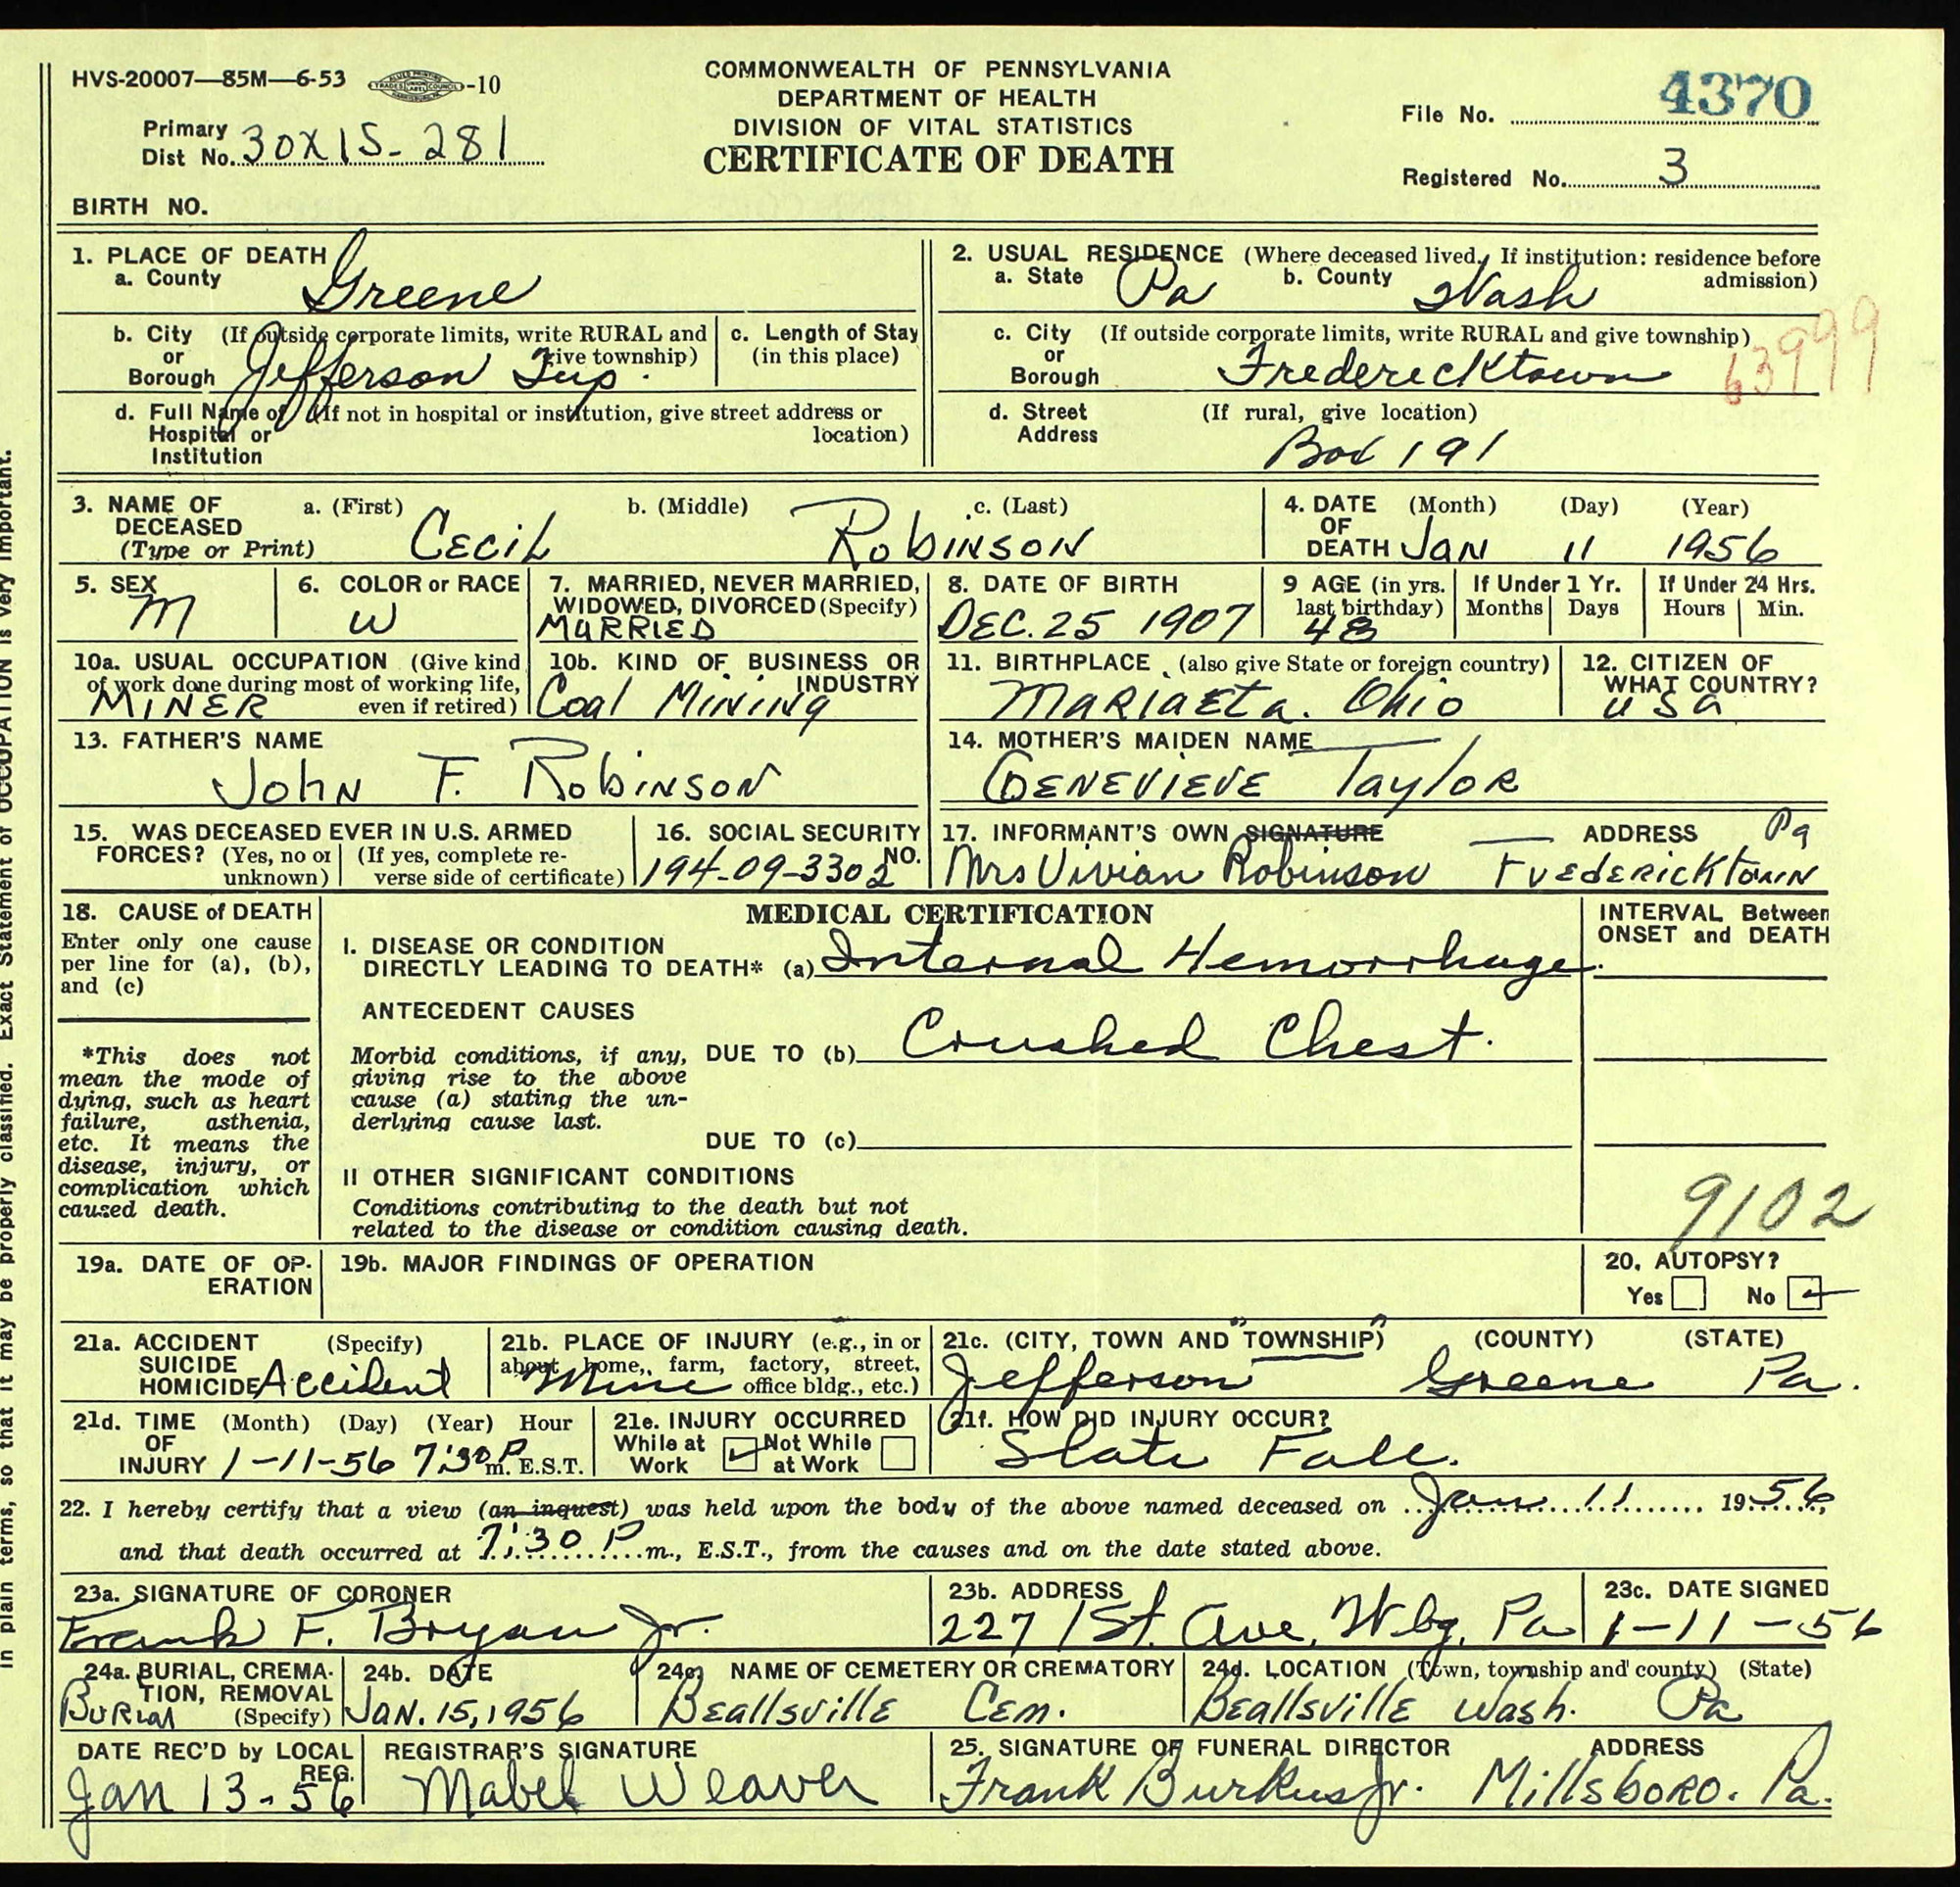 HVS-20007—85M—6-53 -10
COMMONWEALTH OF PENNSYLVANIA
DEPARTMENT OF HEALTH
DIVISION OF VITAL STATISTICS
CERTIFICATE OF DEATH
File No. 4370
Primary
Dist No. 30X15-281
Registered No. 3
BIRTH NO.
1. PLACE OF DEATH
a. County Greene
2. USUAL RESIDENCE (Where deceased lived. If institution: residence before
a. State Pa b. County Wash admission)
b. City (If outside corporate limits, write RURAL and
or give township)
Borough Jefferson Twp.
c. Length of Stay
(in this place)
c. City (If outside corporate limits, write RURAL and give township)
or
Borough Fredericktown
63999
d. Full Name of (If not in hospital or institution, give street address or
Hospital or location)
Institution
d. Street (If rural, give location)
Address Box 191
3. NAME OF a. (First) b. (Middle) c. (Last)
DECEASED
(Type or Print) CECIL ROBINSON
4. DATE (Month) (Day) (Year)
OF
DEATH JAN 11 1956
5. SEX
M
6. COLOR or RACE
W
7. MARRIED, NEVER MARRIED,
WIDOWED, DIVORCED (Specify)
MARRIED
8. DATE OF BIRTH
DEC. 25 1907
9 AGE (in yrs.
last birthday)
48
If Under 1 Yr.
Months Days
If Under 24 Hrs.
Hours Min.
10a. USUAL OCCUPATION (Give kind
of work done during most of working life,
even if retired)
MINER
10b. KIND OF BUSINESS OR
INDUSTRY
Coal Mining
11. BIRTHPLACE (also give State or foreign country)
Mariaeta. Ohio
12. CITIZEN OF
WHAT COUNTRY?
USA
13. FATHER'S NAME
John F. Robinson
14. MOTHER'S MAIDEN NAME
GENEVIEVE Taylor
15. WAS DECEASED EVER IN U.S. ARMED
FORCES? (Yes, no or (If yes, complete re-
unknown) verse side of certificate)
16. SOCIAL SECURITY
NO.
194-09-3302
17. INFORMANT'S OWN SIGNATURE — ADDRESS Pa
Mrs Vivian Robinson FREDERICKtown
18. CAUSE of DEATH
Enter only one cause
per line for (a), (b),
and (c)
*This does not
mean the mode of
dying, such as heart
failure, asthenia,
etc. It means the
disease, injury, or
complication which
caused death.
MEDICAL CERTIFICATION
I. DISEASE OR CONDITION
DIRECTLY LEADING TO DEATH* (a) Internal Hemorrhage.
ANTECEDENT CAUSES
Morbid conditions, if any,
giving rise to the above
cause (a) stating the un-
derlying cause last.
DUE TO (b) Crushed Chest.
DUE TO (c)
II OTHER SIGNIFICANT CONDITIONS
Conditions contributing to the death but not
related to the disease or condition causing death.
INTERVAL Between
ONSET and DEATH
9102
19a. DATE OF OP-
ERATION
19b. MAJOR FINDINGS OF OPERATION
20. AUTOPSY?
Yes No
21a. ACCIDENT (Specify)
SUICIDE
HOMICIDE Accident
21b. PLACE OF INJURY (e.g., in or
about home, farm, factory, street,
office bldg., etc.)
Mine
21c. (CITY, TOWN AND "TOWNSHIP") (COUNTY) (STATE)
Jefferson Greene Pa.
21d. TIME (Month) (Day) (Year) Hour
OF
INJURY 1-11-56 7:30 P m. E.S.T.
21e. INJURY OCCURRED
While at Not While
Work at Work
21f. HOW DID INJURY OCCUR?
Slate Fall.
22. I hereby certify that a view (an inquest) was held upon the body of the above named deceased on Jan 11 1956,
and that death occurred at 7:30 P m., E.S.T., from the causes and on the date stated above.
23a. SIGNATURE OF CORONER
Frank F. Bryan Jr.
23b. ADDRESS
227 1St. Ave, Wbg, Pa
23c. DATE SIGNED
1-11-56
24a. BURIAL, CREMA-
TION, REMOVAL
(Specify)
Burial
24b. DATE
JAN. 15, 1956
24c. NAME OF CEMETERY OR CREMATORY
Beallsville Cem.
24d. LOCATION (Town, township and county) (State)
Beallsville Wash. Pa
DATE REC'D by LOCAL
REG.
Jan 13-56
REGISTRAR'S SIGNATURE
Mabel Weaver
25. SIGNATURE OF FUNERAL DIRECTOR ADDRESS
Frank Burkus Jr. Millsboro. Pa.
in plain terms, so that it may be properly classified. Exact Statement of OCCUPATION is very important.